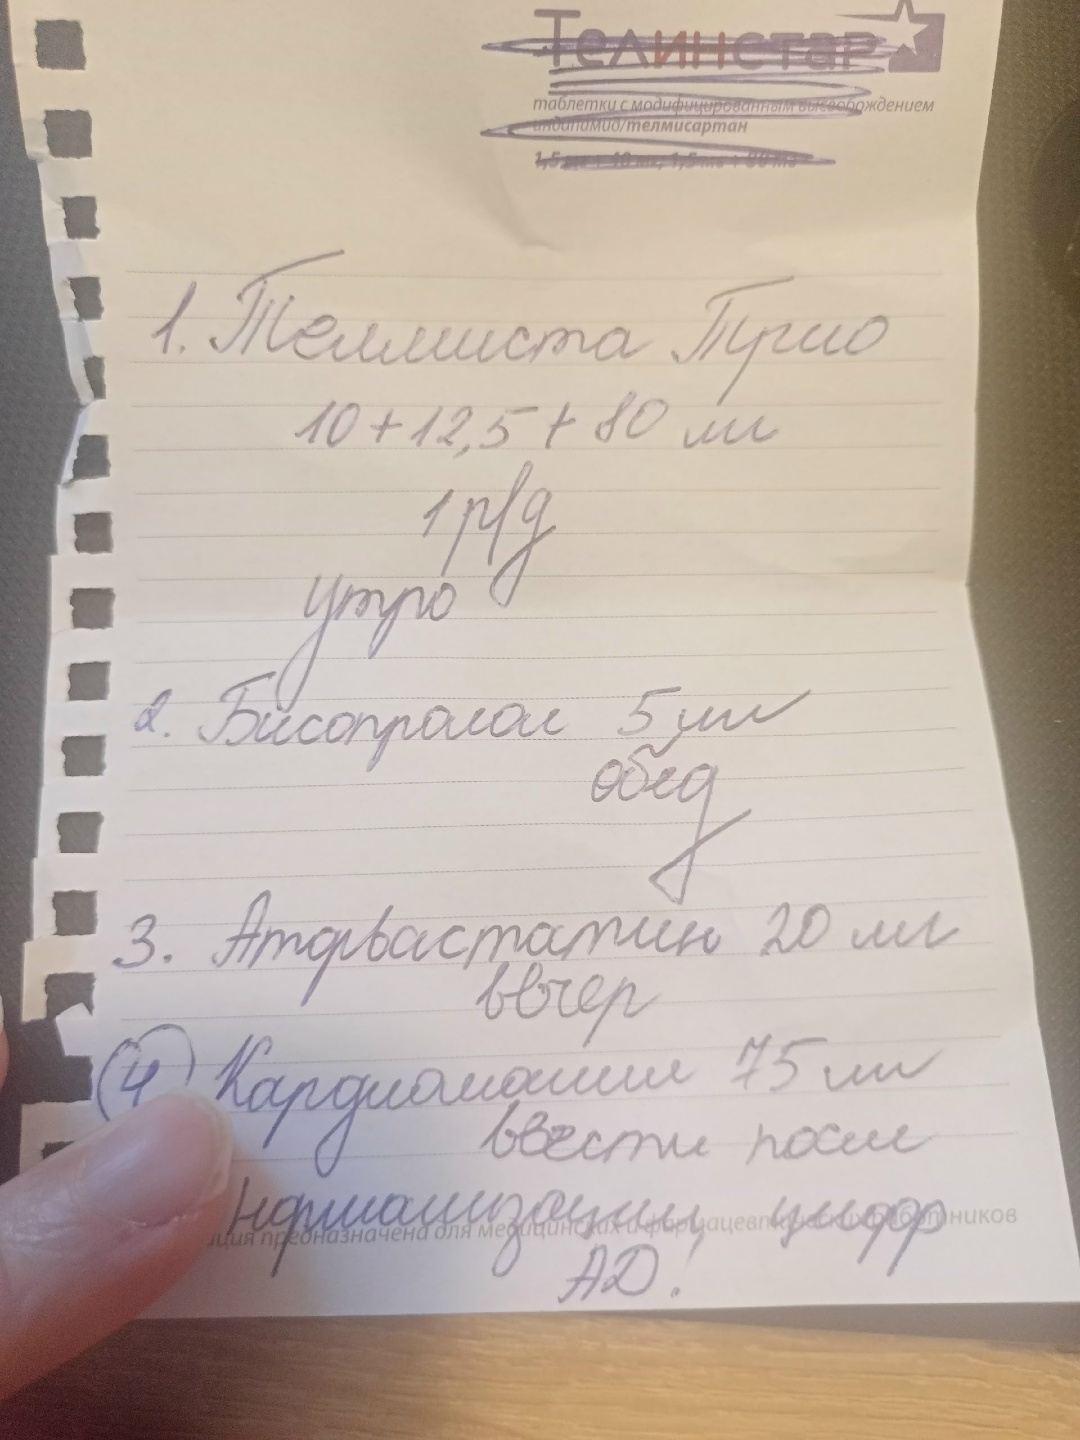 Телинстар
таблетки с модифицированным высвобождением
индапамид/телмисартан
1,5 мг + 40 мг, 1,5 мг + 80 мг
1. Телмиста Трио
10+12,5+80 мг
1 р/д
утро
2. Бисопролол 5 мг
обед
3. Аторвастатин 20 мг
ввчер
(4) Кардиомагнил 75 мг
ввести после
нормализации цифр
ция предназначена для медицинских и фармацевтических работников
АД!